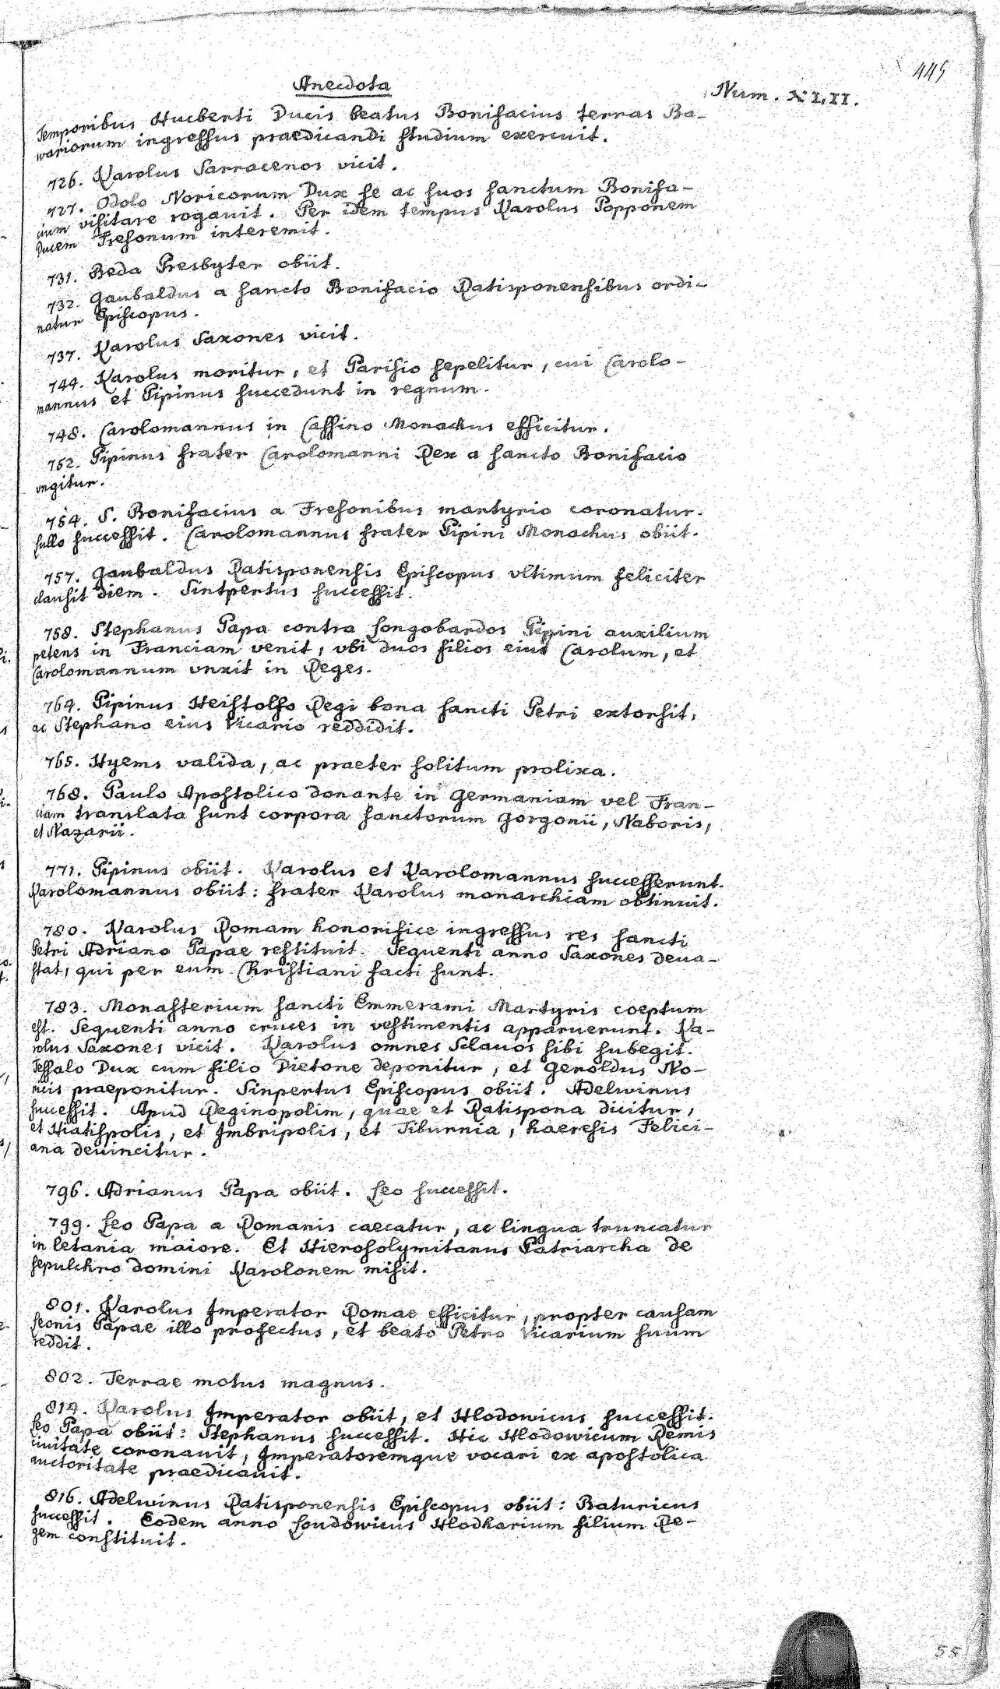 445
Anecdota
Num. XLII.
Temporibus Hucberti Ducis beatus Bonifacius terras Ba-
wariorum ingressus praedicandi studium exercuit.
726. Karolus Sarracenos vicit.
727. Odolo Noricorum Dux se ac suos sanctum Bonifa-
cium visitare rogauit. Per idem tempus Karolus Popponem
Ducem Fresonum interemit.
731. Beda Presbyter obiit.
732. Gaubaldus a sancto Bonifacio Ratisponensibus ordi-
natur Episcopus.
737. Karolus Saxones vicit.
744. Karolus moritur, et Parisio sepelitur, cui Carolo-
mannus et Pipinus succedunt in regnum.
748. Carolomannus in Cassino Monachus efficitur.
752. Pipinus frater Carolomanni Rex a sancto Bonifacio
vngitur.
754. S. Bonifacius a Fresonibus martyrio coronatur.
sullo successit. Carolomannus frater Pipini Monachus obiit.
757. Gaubaldus Ratisponensis Episcopus vltimum feliciter
clausit diem. Sintpertus successit.
758. Stephanus Papa contra Longobardos Pipini auxilium
petens in Franciam venit, vbi duos filios eius Carolum, et
Carolomannum vnxit in Reges.
764. Pipinus Heistolfo Regi bona sancti Petri extorsit,
ac Stephano eius Vicario reddidit.
765. Hyems valida, ac praeter solitum prolixa.
768. Paulo Apostolico donante in Germaniam vel Fran-
ciam translata sunt corpora sanctorum Gorgonii, Naboris,
et Nazarii.
771. Pipinus obiit. Karolus et Karolomannus successerunt.
Karolomannus obiit: frater Karolus monarchiam obtinuit.
780. Karolus Romam honorifice ingressus res sancti
Petri Adriano Papae restituit. Sequenti anno Saxones deua-
stat, qui per eum Christiani facti sunt.
783. Monasterium sancti Emmerami Martyris coeptum
est. Sequenti anno cruces in vestimentis apparuerunt. Ka-
rolus Saxones vicit. Karolus omnes Sclauos sibi subegit.
Tessalo Dux cum filio Dietone deponitur, et Geroldus No-
ricis praeponitur. Sinpertus Episcopus obiit. Adelwinus
successit. Apud Reginopolim, quae et Ratispona dicitur,
et Hiatispolis, et Imbripolis, et Tiburnia, haeresis Felici-
ana deuincitur.
796. Adrianus Papa obiit. Leo successit.
799. Leo Papa a Romanis caecatur, ac lingua truncatur
in letania maiore. Et Hierosolymitanus Patriarcha de
sepulchro domini Karolonem misit.
801. Karolus Imperator Romae efficitur, propter causam
Leonis Papae illo profectus, et beato Petro Vicarium suum
reddit.
802. Terrae motus magnus.
814. Karolus Imperator obiit, et Hlodowicus successit.
Leo Papa obiit: Stephanus successit. Hic Hlodowicum Remis
ciuitate coronauit, Imperatoremque vocari ex apostolica
auctoritate praedicauit.
816. Adelwinus Ratisponensis Episcopus obiit: Baturicus
successit. Eodem anno Loudowicus Hlodharium filium Re-
gem constituit.
55